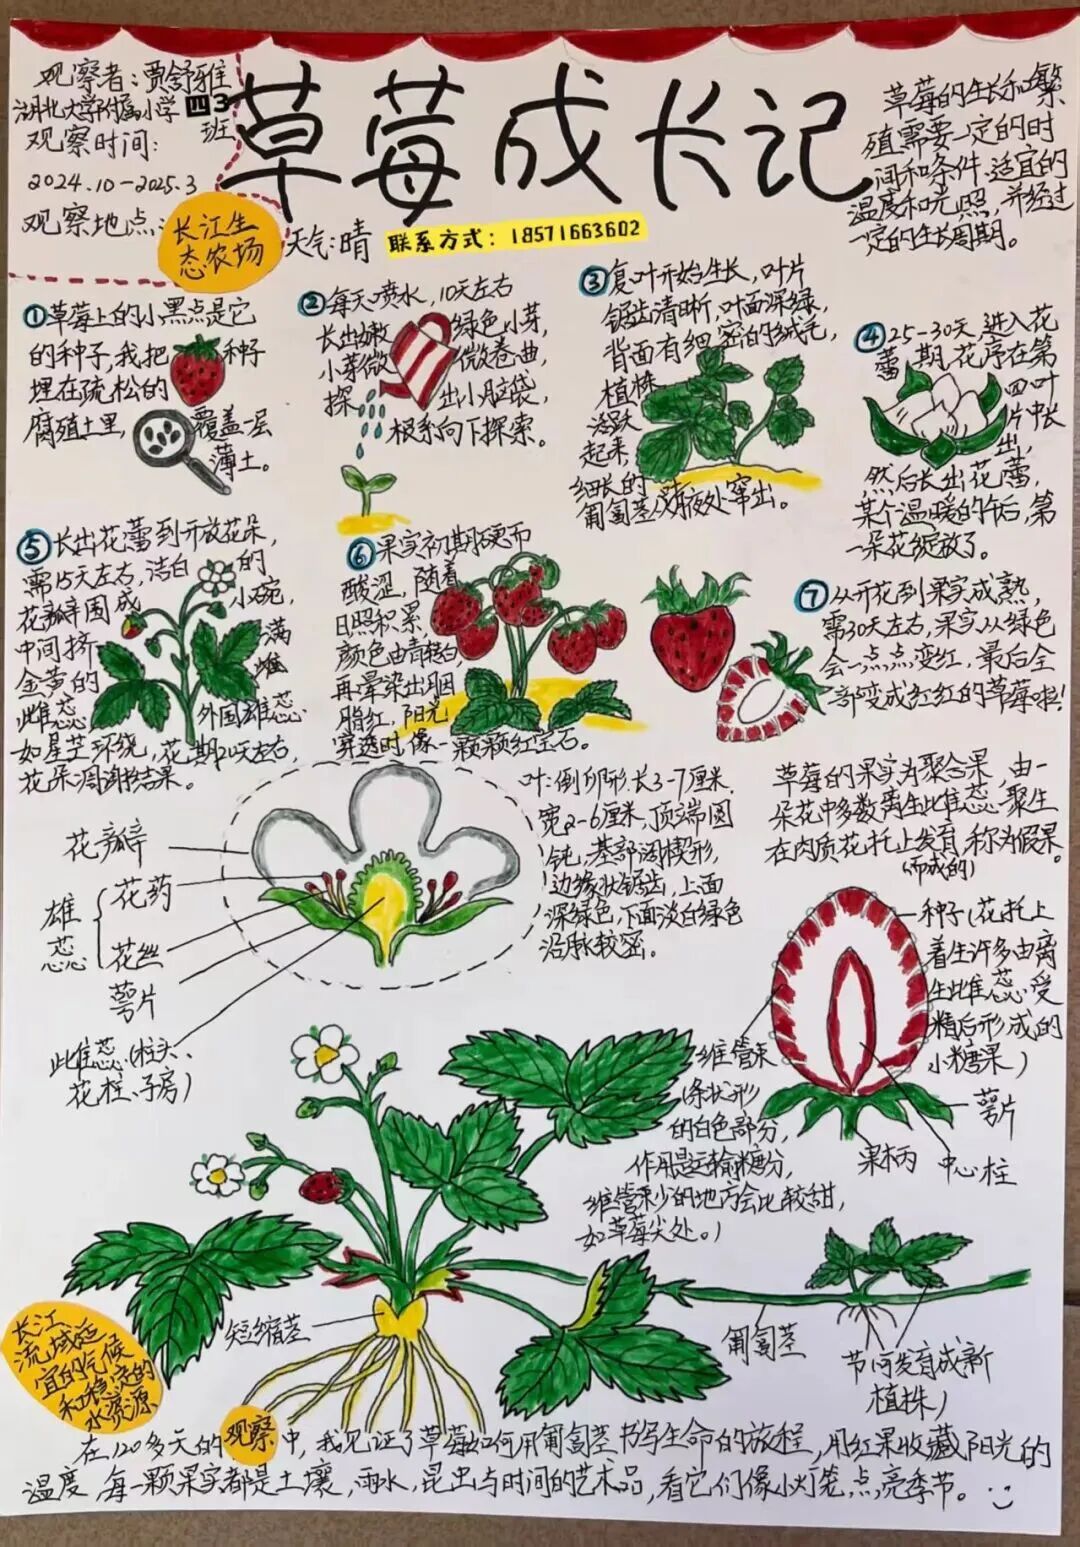 观察者:贾舒雅
湖北大学附属小学四3班
观察时间:
2024.10-2025.3
观察地点:长江生
态农场
草莓成长记
天气:晴
联系方式:18571663602
草莓的生长和繁
殖需要一定的时
间和条件.适宜的
温度和光照,并经过
一定的生长周期。
①草莓上的小黑点是它
的种子,我把种子
埋在疏松的
腐殖土里,覆盖一层
薄土。
②每天喷水,10天左右
长出嫩绿色小芽,
小芽微微卷曲,
探出小脑袋,
根系向下探索。
③复叶开始生长,叶片
锯齿清晰,叶面深绿,
背面有细密的绒毛,
植株
活跃
起来,
细长的
匍匐茎从腋处窜出。
④25-30天,进入花
蕾期,花序在第
四叶
片中长
出,
然后长出花蕾,
某个温暖的午后,第
一朵花绽放了。
⑤长出花蕾到开放花朵,
需15天左右,洁白的
花瓣围成小碗,
中间挤满
金黄的雌
雌蕊,外围雄蕊
如星芒环绕,花期20天左右,
花朵凋谢结果。
⑥果实初期硬而
酸涩,随着
日照积累
颜色由青转白,
再晕染出胭
脂红,阳光
穿透时,像一颗颗红宝石。
⑦从开花到果实成熟,
需30天左右,果实从绿色
会一点点变红,最后全
部变成红红的草莓啦!
花瓣
雄蕊
花药
花丝
萼片
雌蕊(柱头、
花柱、子房)
叶:倒卵形.长3-7厘米.
宽2-6厘米,顶端圆
钝,基部阔楔形,
边缘状锯齿,上面
深绿色,下面淡白绿色
沿脉较密。
草莓的果实为聚合果,由一
朵花中多数离生雌蕊聚生
在肉质花托上发育,称为假果。
(而成的)
种子(花托上
着生许多由离
生雌蕊受
精后形成的
小糖果)
萼片
果柄
中心柱
维管束
(条状形
的白色部分,
作用是运输糖分,
维管束少的地方会比较甜,
如草莓尖处。)
短缩茎
匍匐茎
节(可发育成新
植株)
长江
流域适
宜的气候
和稳定的
水资源
在120多天的观察中,我见证了草莓如何用匍匐茎书写生命的旅程,用红果收藏阳光的
温度,每一颗果实都是土壤,雨水,昆虫与时间的艺术品,看它们像小灯笼,点亮季节。